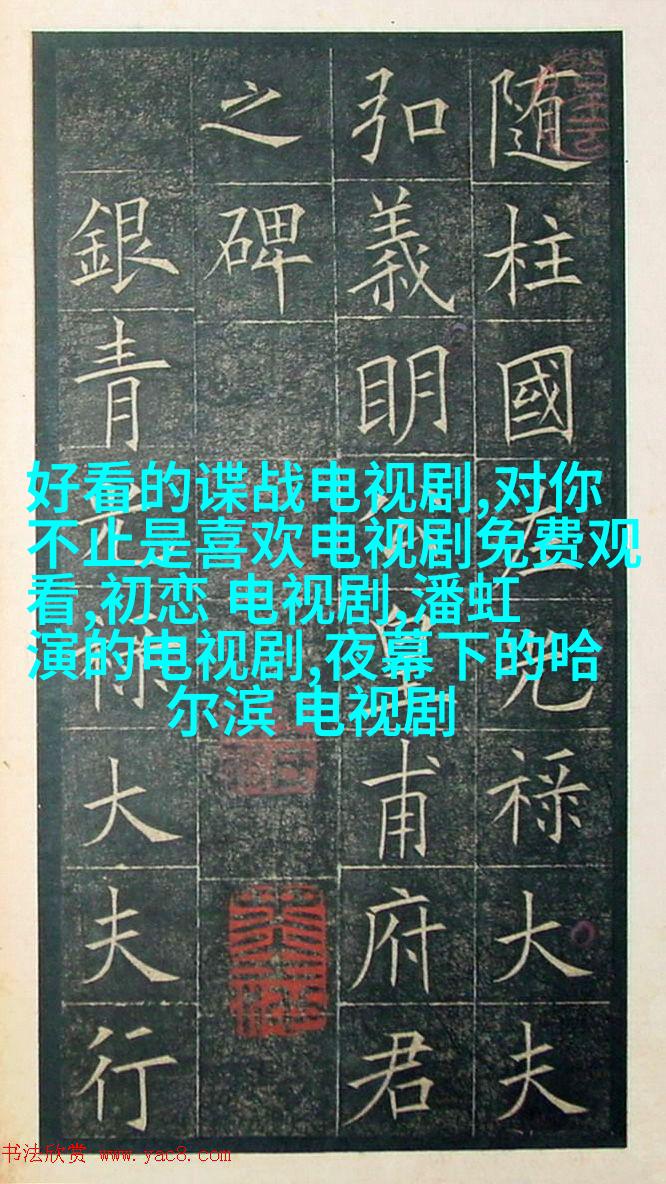 随柱國左光禄大夫
弘義明公皇甫府君
之碑
銀青光禄大夫行
好看的谍战电视剧,对你
不止是喜欢电视剧免费观
看,初恋 电视剧,潘虹
演的电视剧,夜幕下的哈
尔滨 电视剧
书法欣赏 www.yac8.com